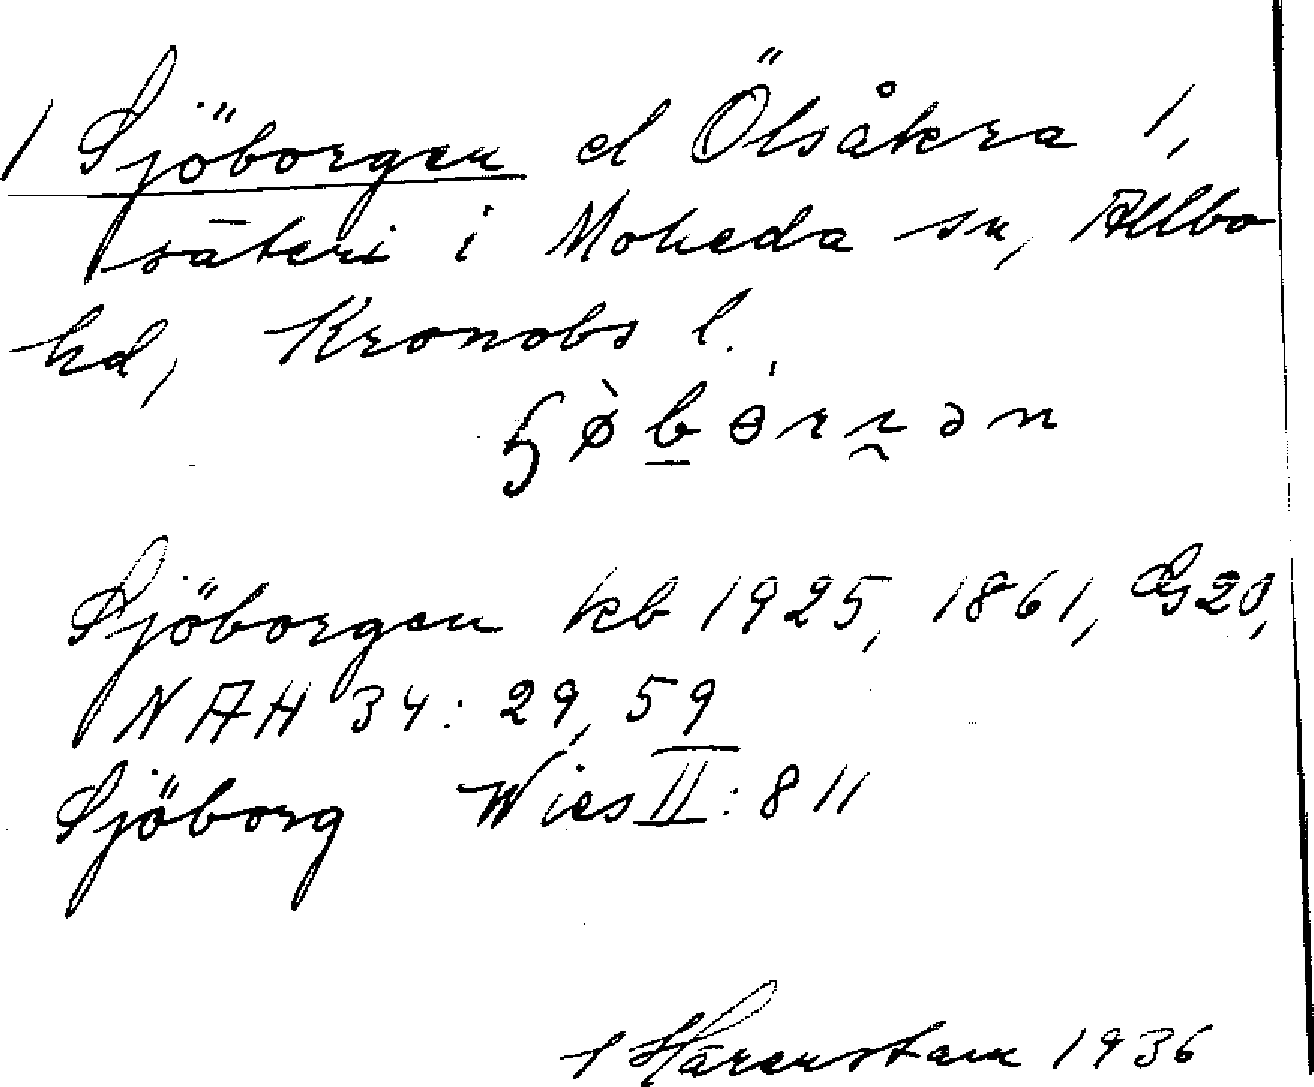 1 Sjöborgen el Ölsåkra 1,
säteri i Moheda sn, Allbo
hd, Kronobs l.
Sjöborgen kb 1925, 1861, GS20,
NAH 34: 29, 59
Sjöborg Wies II: 811
Härenstam 1936